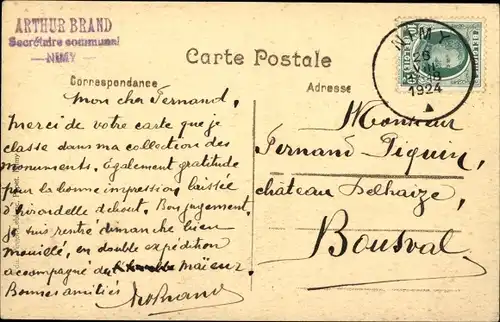 ARTHUR BRAND
Secrétaire communal
— NIMY —
Carte Postale
NIMY
6
18
1924
Correspondance
Adresse
Mon cher Fernand,
Merci de votre carte que je
classe dans ma collection des
monuments. Également gratitude
pour la bonne impression laissée
d'hirondelle debout. Bon jugement.
Je suis rentré dimanche bien
mouillé, en double expédition
accompagné du Maïeur.
Bonnes amitiés
ArtBrand
Monsieur
Fernand Piquin,
château Delhaize,
Bousval